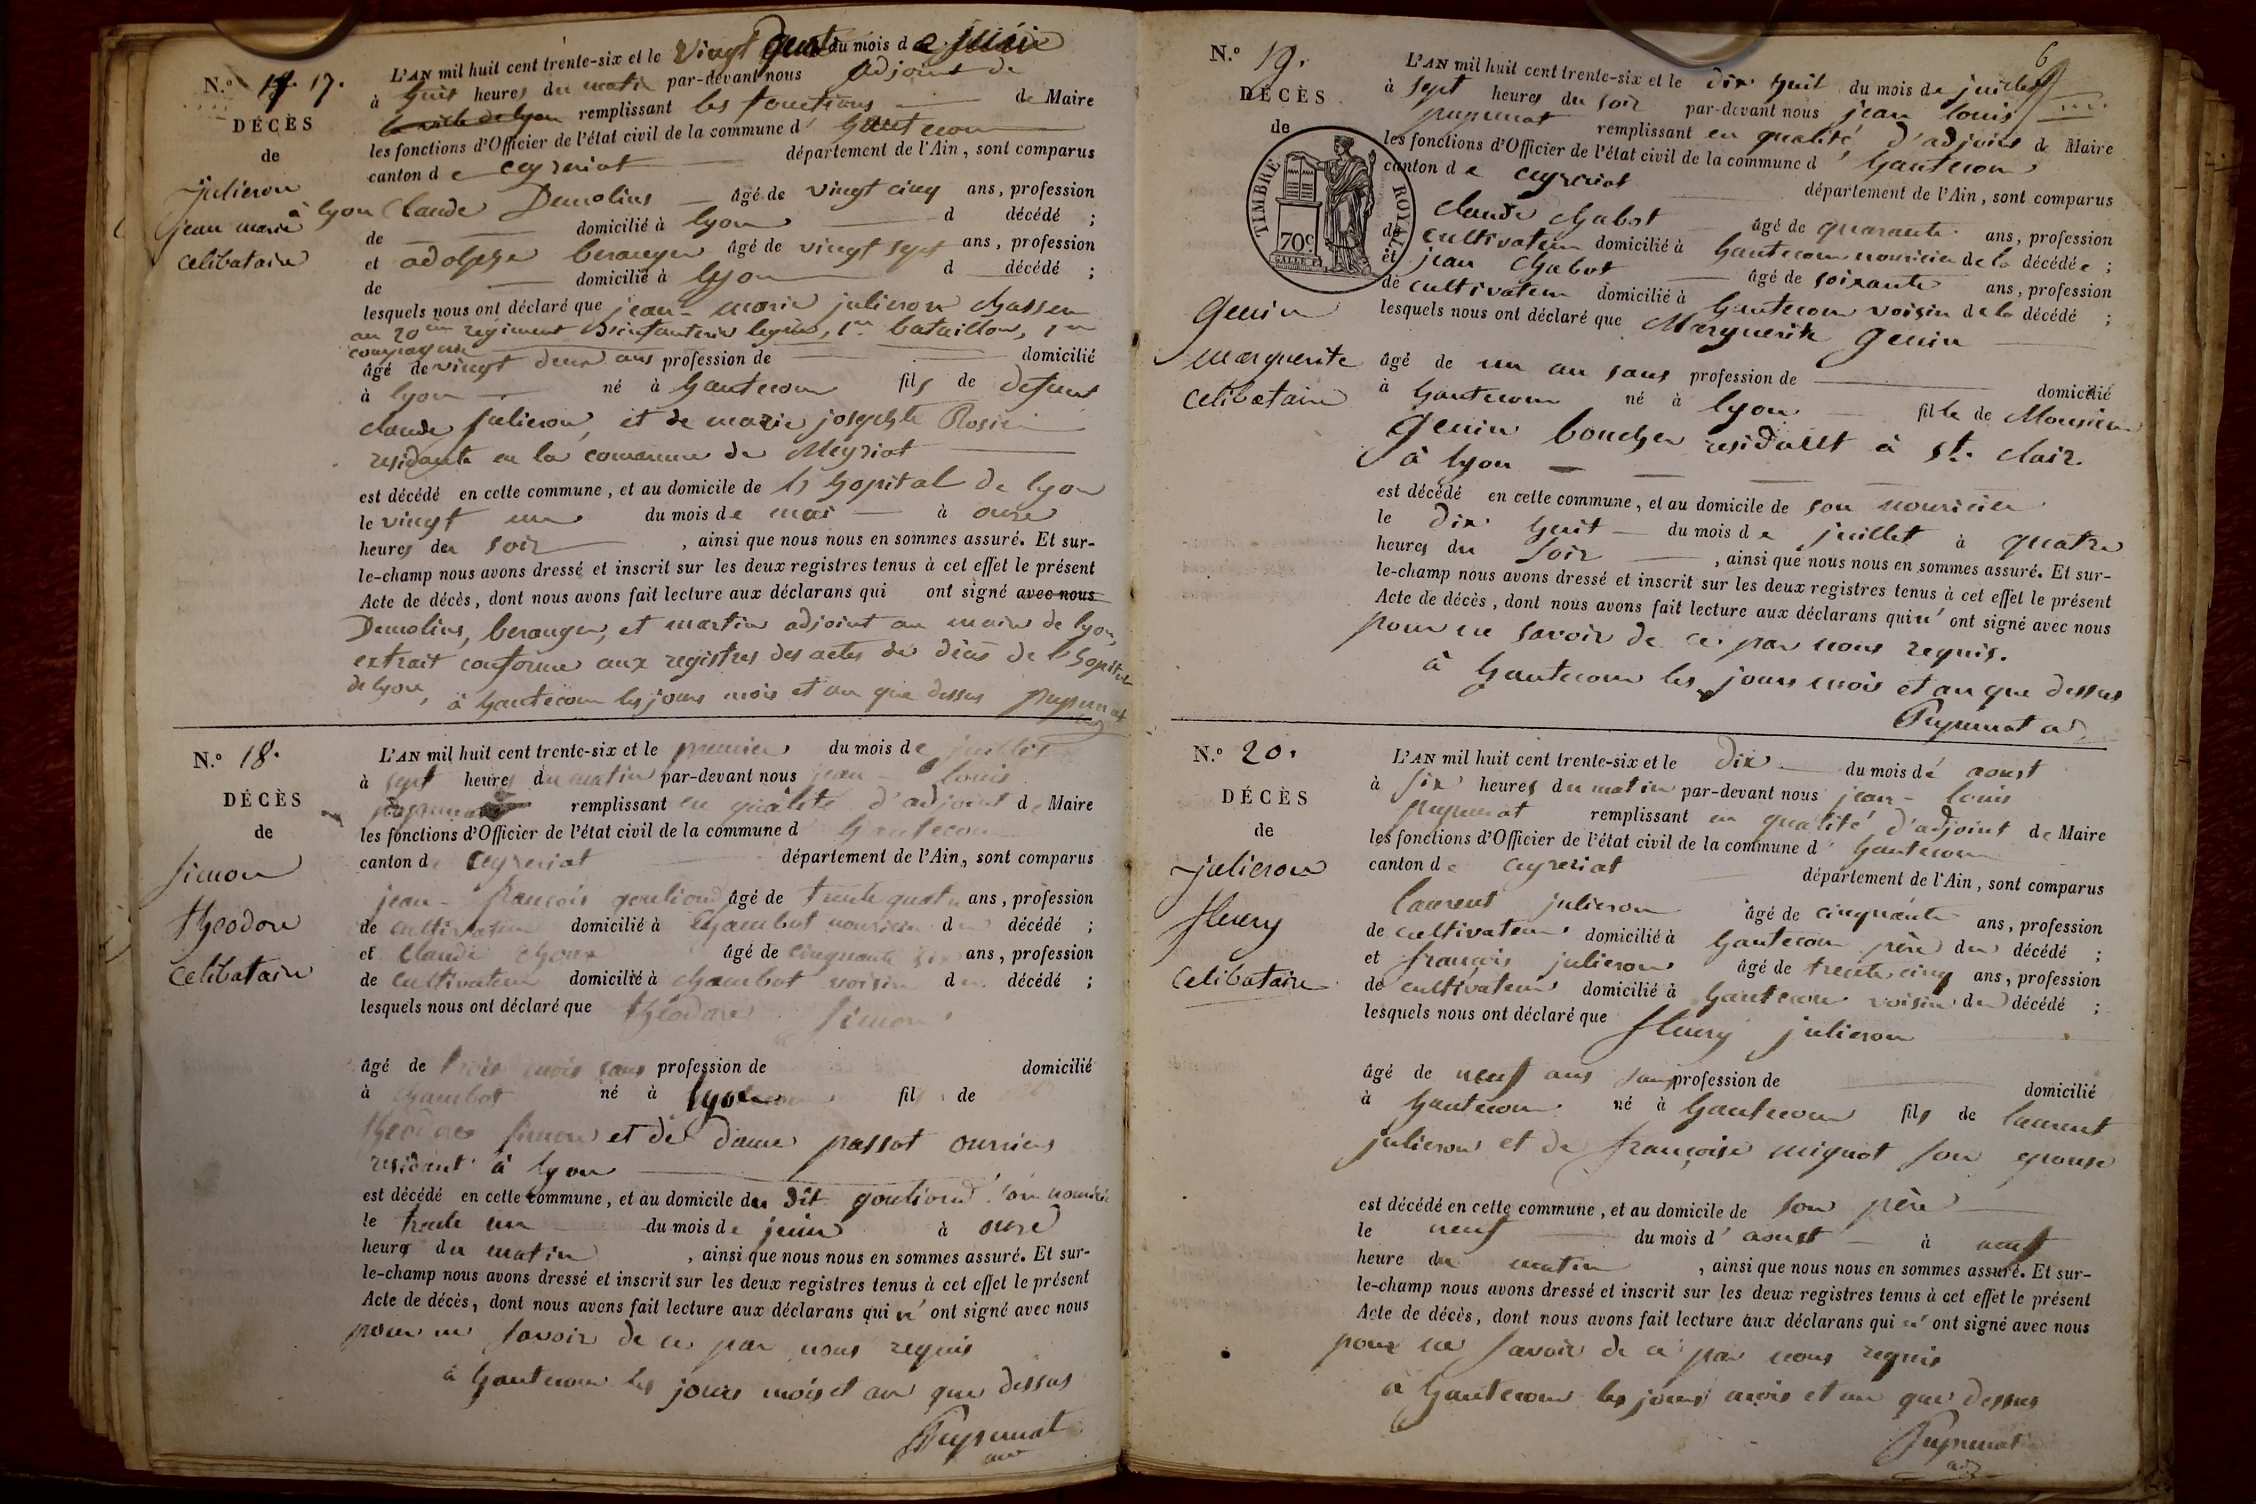 N.º 17.
DÉCÈS
de
julieron
jean marie à lyon
celibataire
L'AN mil huit cent trente-six et le vingt quatre du mois de juin
à huit heures du matin par-devant nous adjoint de
la ville de lyon remplissant les fonctions de Maire
les fonctions d'Officier de l'état civil de la commune d'hautecour
canton de ceyzeriat département de l'Ain, sont comparus
Claude Demolins âgé de vingt cinq ans, profession
de domicilié à lyon d décédé ;
et adolphe beranger âgé de vingt sept ans, profession
de domicilié à lyon d décédé ;
lesquels nous ont déclaré que jean-marie julieron chasseur
au 20me regiment d'infanterie legère, 1er bataillon, 1re
compagnie
âgé de vingt deux ans profession de domicilié
à lyon né à hautecour fils de defunt
claude julieron, et de marie josephte Rosier
residante en la commune de Meyriat
est décédé en cette commune, et au domicile de l'hopital de lyon
le vingt un du mois de mai à onze
heures du soir , ainsi que nous nous en sommes assuré. Et sur-
le-champ nous avons dressé et inscrit sur les deux registres tenus à cet effet le présent
Acte de décès, dont nous avons fait lecture aux déclarans qui ont signé avec nous
Demolins, beranger, et martin adjoint au maire de lyon,
extrait conforme aux registres des actes de décès de l'hopital
de lyon, à hautecour les jours mois et an que dessus puysunat
N.º 18.
DÉCÈS
de
simon
theodore
celibataire
L'AN mil huit cent trente-six et le premier du mois de juillet
à sept heures du matin par-devant nous jean-louis
puysunat remplissant en qualité d'adjoint de Maire
les fonctions d'Officier de l'état civil de la commune d'hautecour
canton de ceyzeriat département de l'Ain, sont comparus
jean-françois goutiond âgé de trente quatre ans, profession
de cultivateur domicilié à chambot nouricier du décédé ;
et Claude choux âgé de cinquante six ans, profession
de cultivateur domicilié à chambot voisin du décédé ;
lesquels nous ont déclaré que theodore simon
âgé de trois mois sans profession de domicilié
à chambot né à lyon fils de
theodore simon et de dame passot ouvriers
residant à lyon
est décédé en cette commune, et au domicile du dit goutiond son nouricier
le trente un du mois de juin à onze
heures du matin , ainsi que nous nous en sommes assuré. Et sur-
le-champ nous avons dressé et inscrit sur les deux registres tenus à cet effet le présent
Acte de décès, dont nous avons fait lecture aux déclarans qui n'ont signé avec nous
pour ne savoir de ce par nous requis
à hautecour les jours mois et an que dessus
Puysunat
6
N.º 19.
DÉCÈS
de
TIMBRE ROYAL
70c
genin
marguerite
celibataire
L'AN mil huit cent trente-six et le dix huit du mois de juillet
à sept heures du soir par-devant nous jean louis
puysunat remplissant en qualité d'adjoint de Maire
les fonctions d'Officier de l'état civil de la commune d'hautecour
canton de ceyzeriat département de l'Ain, sont comparus
claude chabot âgé de quarante ans, profession
de cultivateur domicilié à hautecour nouricier de la décédée ;
et jean chabot âgé de soixante ans, profession
de cultivateur domicilié à hautecour voisin de la décédé ;
lesquels nous ont déclaré que Marguerite genin
âgé de un an sans profession de domicilié
à hautecour né à lyon fille de Monsieur
genin boucher residant à st. clair
à lyon
est décédé en cette commune, et au domicile de son nouricier
le dix huit du mois de juillet à quatre
heures du soir , ainsi que nous nous en sommes assuré. Et sur-
le-champ nous avons dressé et inscrit sur les deux registres tenus à cet effet le présent
Acte de décès, dont nous avons fait lecture aux déclarans qui n'ont signé avec nous
pour ne savoir de ce par nous requis.
à hautecour les jours mois et an que dessus
Puysunat ad
N.º 20.
DÉCÈS
de
julieron
fleury
celibataire
L'AN mil huit cent trente-six et le dix du mois dé aoust
à six heures du matin par-devant nous jean-louis
puysunat remplissant en qualité d'adjoint de Maire
les fonctions d'Officier de l'état civil de la commune d'hautecour
canton de ceyzeriat département de l'Ain, sont comparus
laurent julieron âgé de cinquante ans, profession
de cultivateur domicilié à hautecour père du décédé ;
et françois julieron âgé de trente cinq ans, profession
de cultivateur domicilié à hautecour voisin du décédé ;
lesquels nous ont déclaré que fleury julieron
âgé de neuf ans sans profession de domicilié
à hautecour né à hautecour fils de laurent
julieron et de françoise mignot son epouse
est décédé en cette commune, et au domicile de son père
le neuf du mois d'aoust à neuf
heure du matin , ainsi que nous nous en sommes assuré. Et sur-
le-champ nous avons dressé et inscrit sur les deux registres tenus à cet effet le présent
Acte de décès, dont nous avons fait lecture aux déclarans qui n'ont signé avec nous
pour ne savoir de ce par nous requis
à hautecour les jours mois et an que dessus
Puysunat
adj